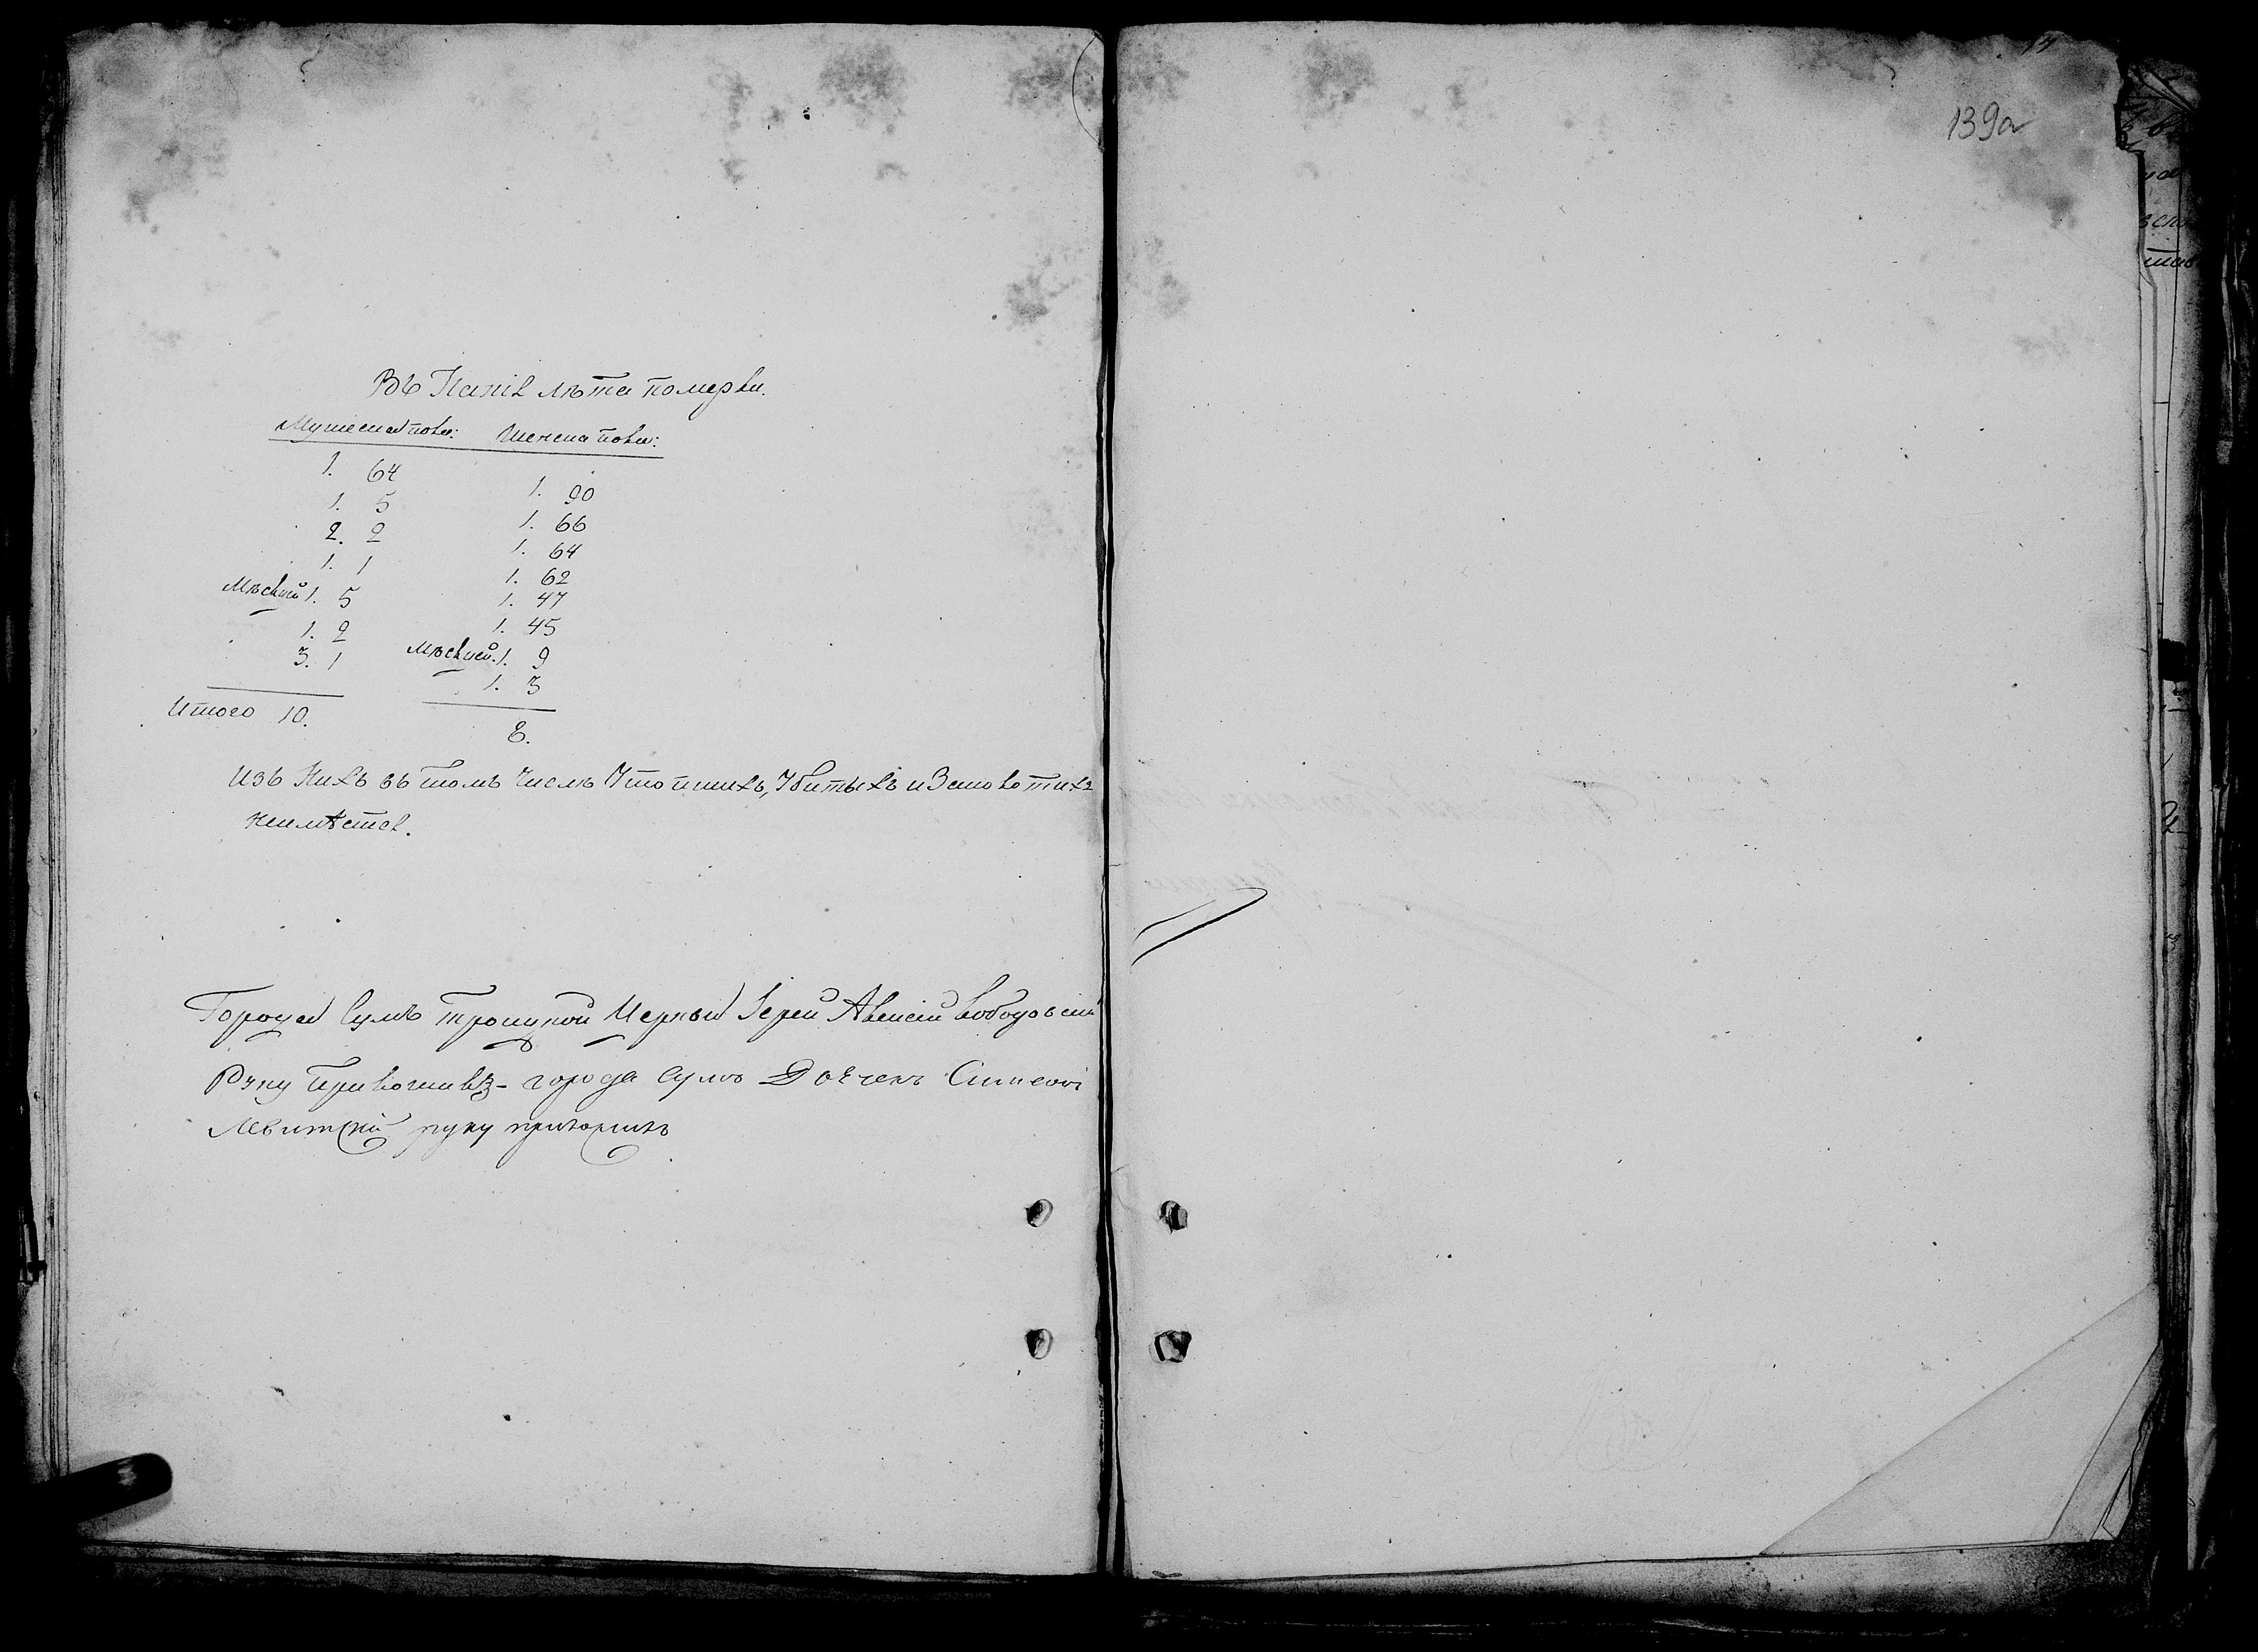 Въ Какїя лѣта померли.
Мужеска полу: Женска полу:
1. 64
1. 5
2. 2
1. 1
Мѣсяцей 1. 5
1. 2
3. 1
Итого 10.
1. 90
1. 66
1. 64
1. 62
1. 47
1. 45
Мѣсяцей. 1. 9
1. 3
8.
Изъ нихъ въ томъ числѣ Утопшихъ, Убитыхъ и
неимѣется.
Города Сумъ Троицкой Церкви Іерей Алексій
Руку Приложилъ - города Сумъ Дьячекъ Симеонъ
Левитскій руку приложилъ
139а